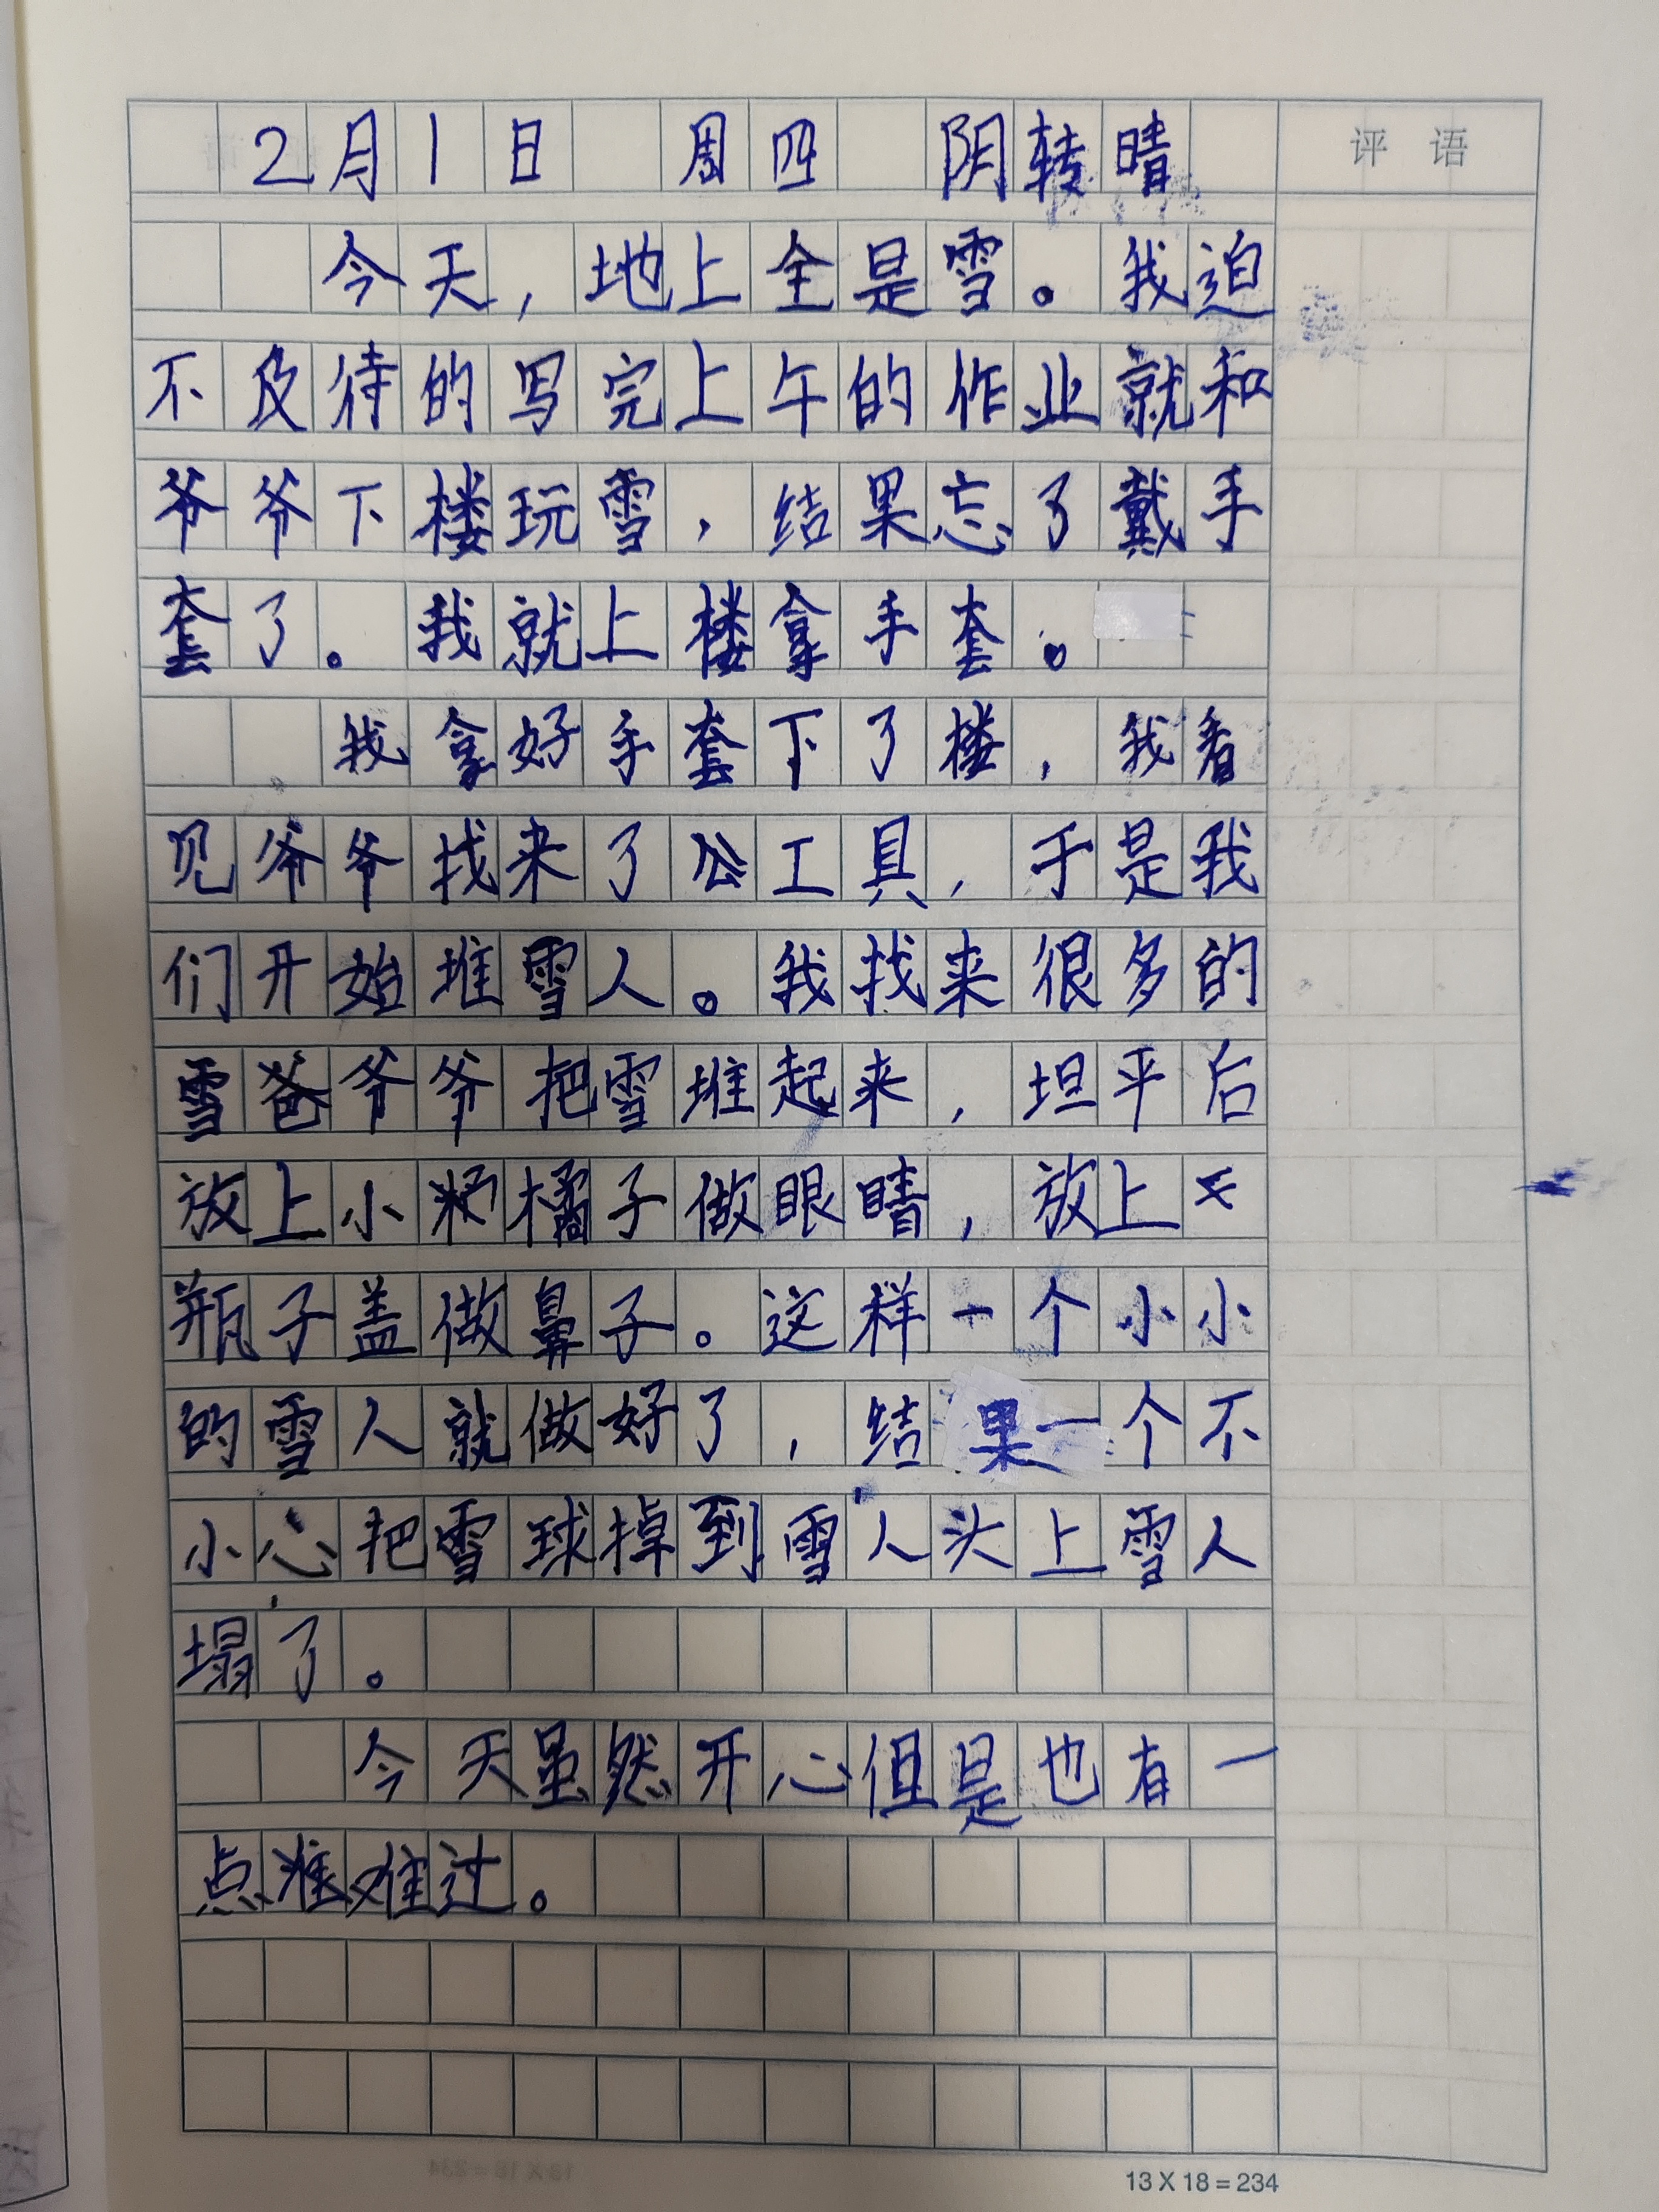 2月1日 周四 阴转晴
评语
今天，地上全是雪。我迫
不及待的写完上午的作业就和
爷爷下楼玩雪，结果忘了戴手
套了。我就上楼拿手套。
我拿好手套下了楼，我看
见爷爷找来了公工具，于是我
们开始堆雪人。我找来很多的
雪爸爷爷把雪堆起来，坦平后
放上小橘子做眼睛，放上
瓶子盖做鼻子。这样一个小小
的雪人就做好了，结果一个不
小心把雪球掉到雪人头上雪人
塌了。
今天虽然开心但是也有一
点难难过。
13X18=234